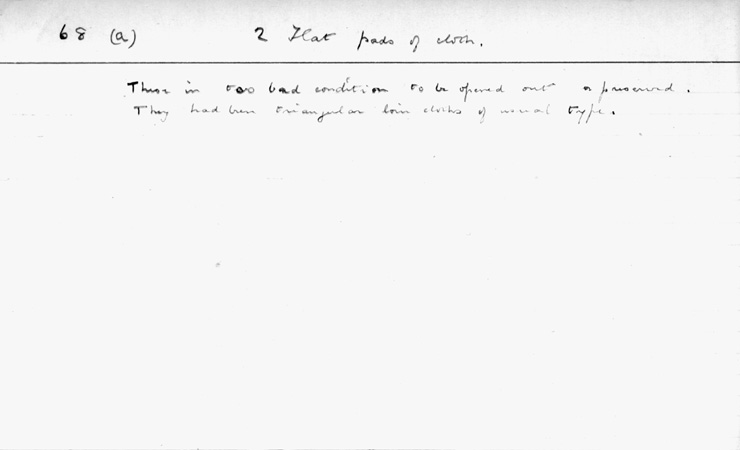 68 (a) 2 Flat pads of cloth.
These in too bad condition to be opened out or preserved.
They had been triangular loin cloths of usual type.